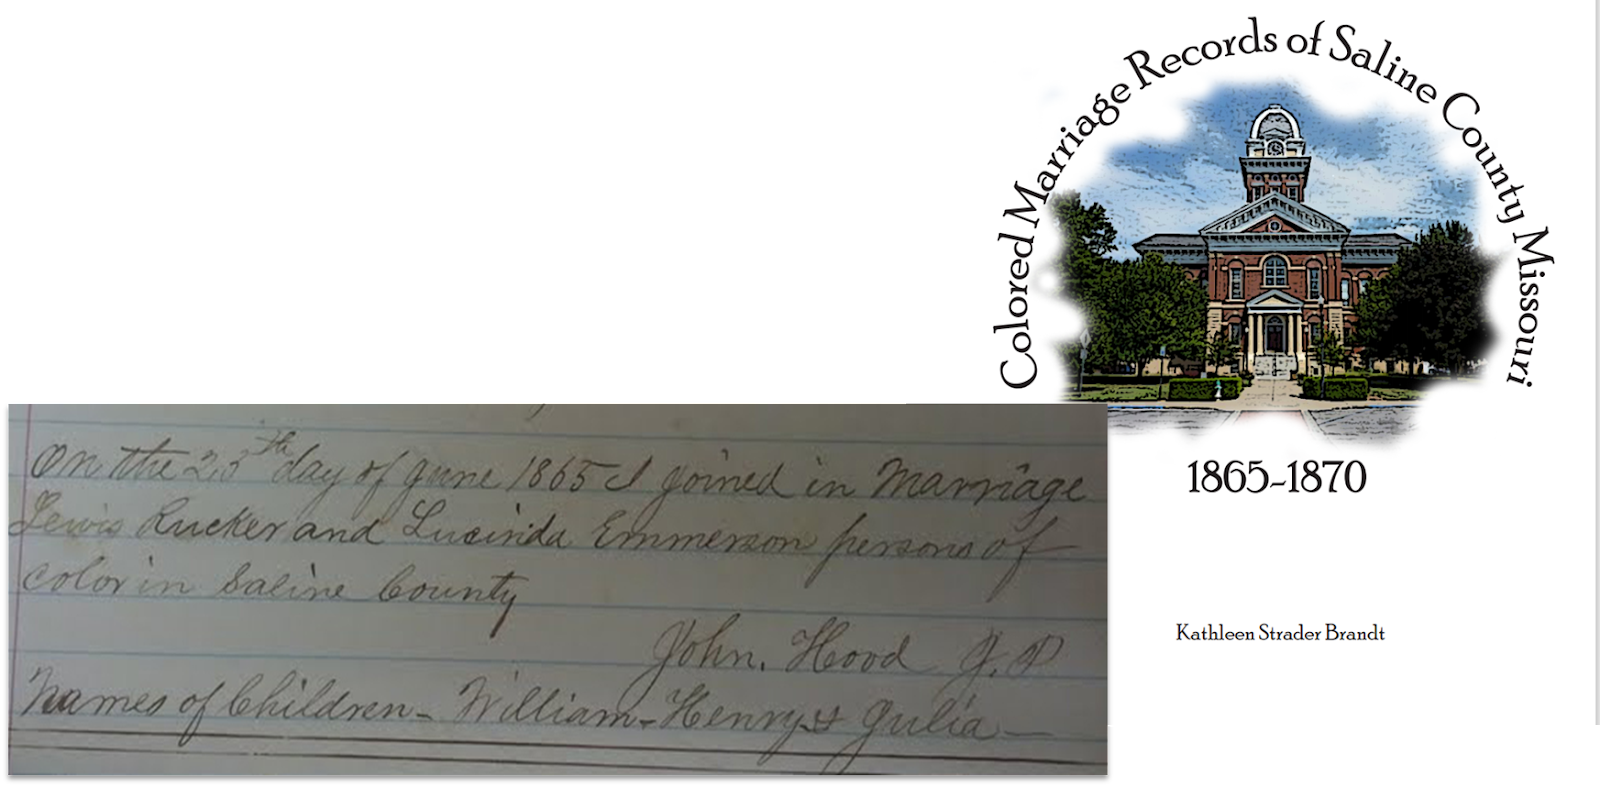 Colored Marriage Records of Saline County Missouri
1865-1870
Kathleen Strader Brandt
On the 25th day of June 1865 I joined in Marriage
Lewis Rucker and Lucinda Emmerson persons of
color in Saline County
John. Hood J.P
Names of Children- William- Henry & Julia